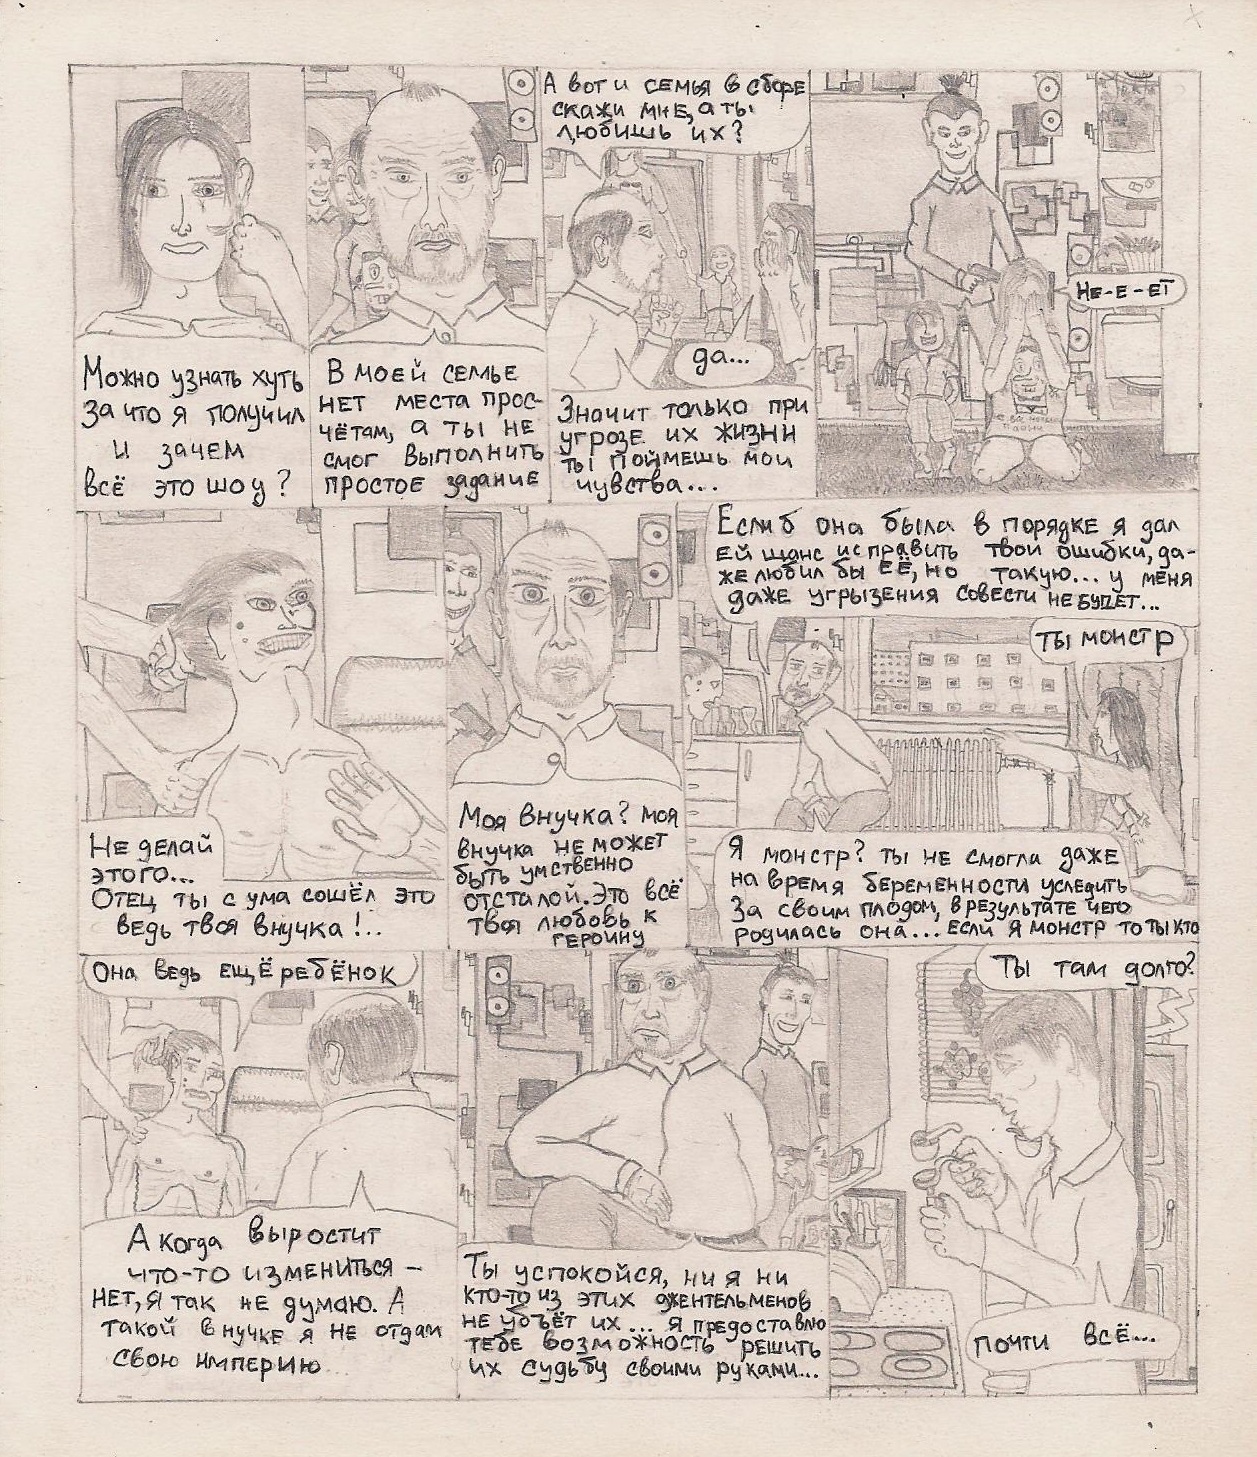 Можно узнать хуть
за что я получил
и зачем
всё это шоу?
В моей семье
нет места прос-
чётам, а ты не
смог выполнить
простое задание
А вот и семья в сборе
скажи мне, а ты
любишь их?
да...
Значит только при
угрозе их жизни
ты поймешь мои
чувства...
Не-е-ет
Не делай
этого...
Отец ты с ума сошёл это
ведь твоя внучка!..
Моя внучка? моя
внучка не может
быть умственно
отсталой. Это всё
твоя любовь к
героину
Если б она была в порядке я дал
ей шанс исправить твои ошибки, да-
же любил бы её, но такую... у меня
даже угрызения совести не будет...
Ты монстр
Я монстр? ты не смогла даже
на время беременности уследить
за своим плодом, в результате чего
родилась она... если я монстр то ты кто
Она ведь ещё ребёнок
А когда выростит
что-то измениться -
нет, я так не думаю. А
такой внучке я не отдам
свою империю
Ты успокойся, ни я ни
кто-то из этих джентельменов
не убъёт их... я предоставлю
тебе возможность решить
их судьбу своими руками...
Ты там долго?
почти всё...